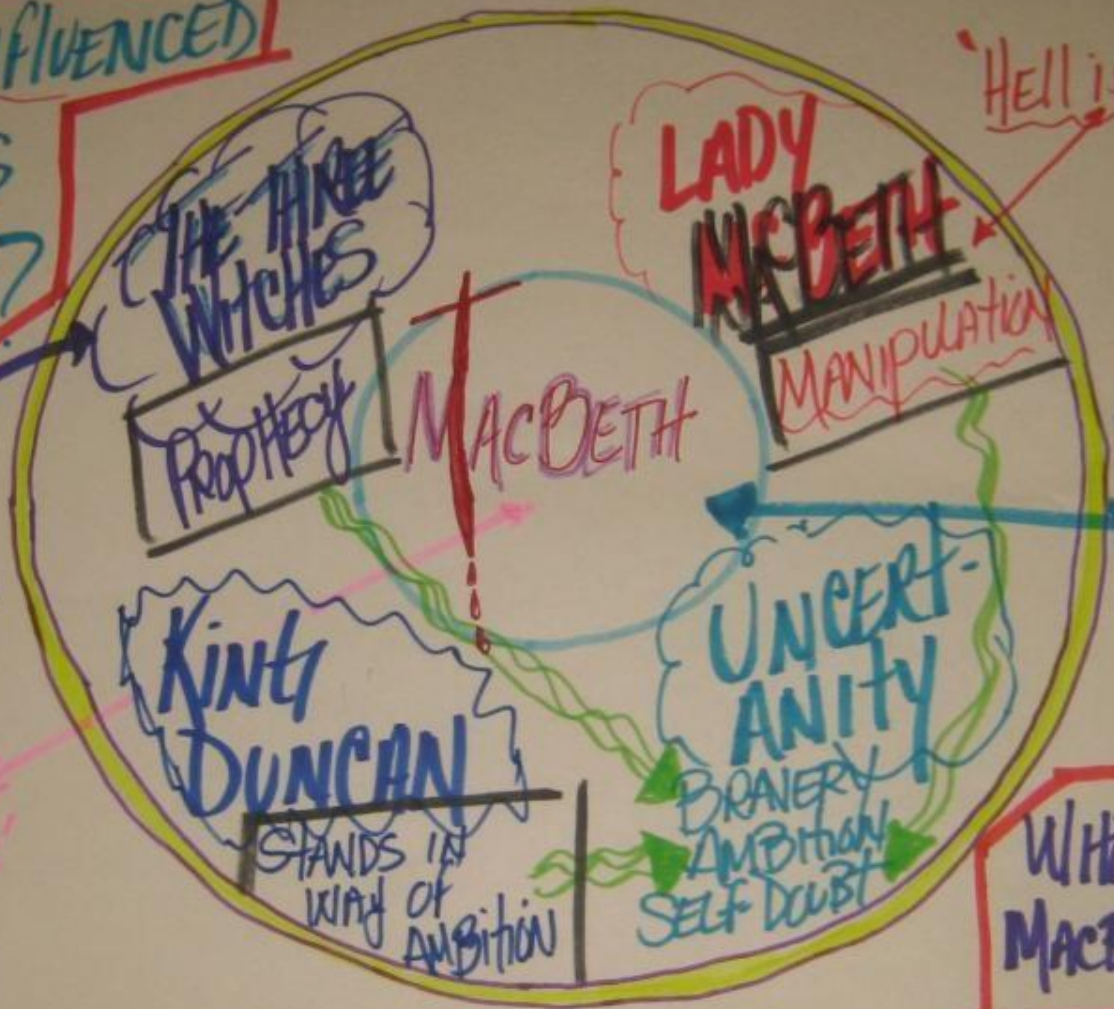 FLUENCED
S
?
'Hell i
THE THREE
WITCHES
PROPHECY
LADY
MACBETH
MANIPULATION
MACBETH
KING
DUNCAN
STANDS IN
WAY OF
AMBITION
UNCERT-
ANITY
BRAVERY
AMBITION
SELF-DOUBT
WH
MACB